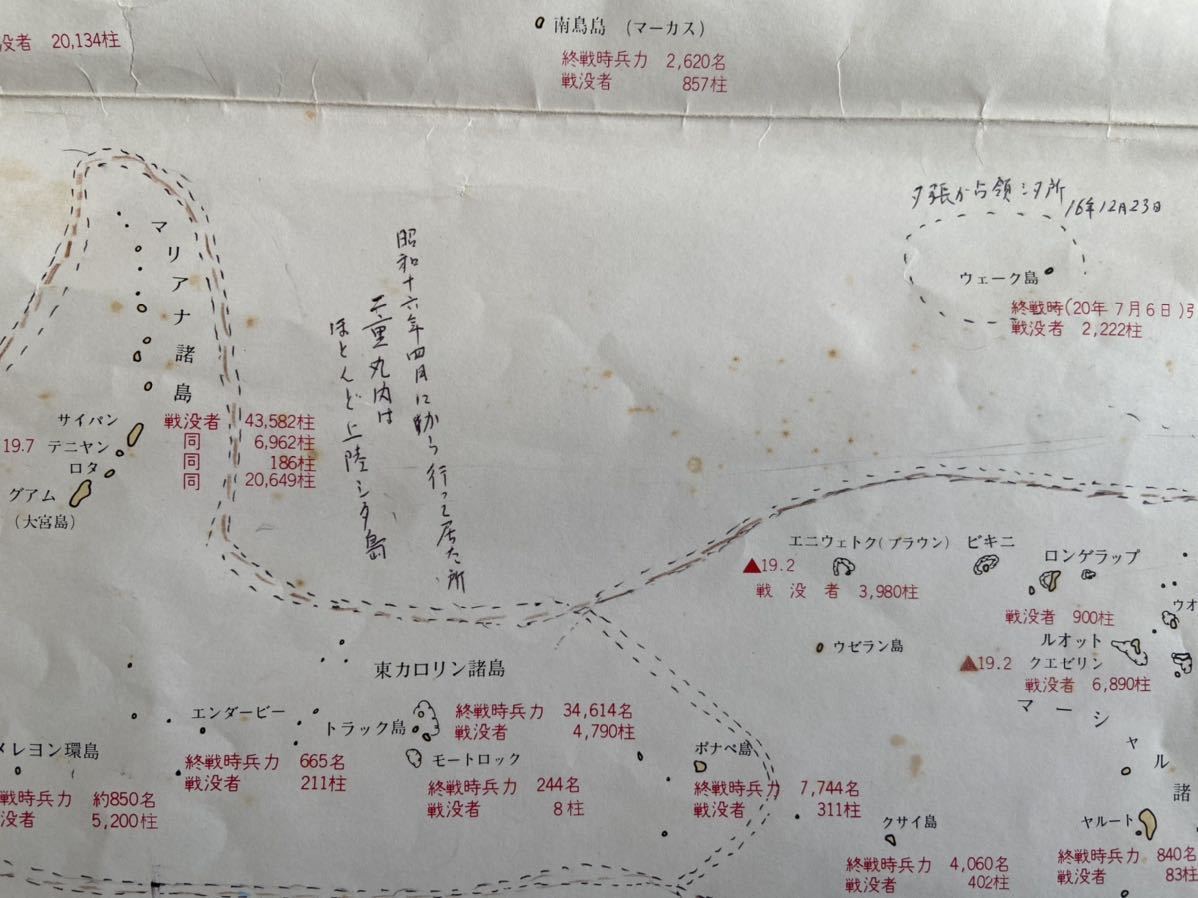 没者 20,134柱
南鳥島 (マーカス)
終戦時兵力 2,620名
戦没者 857柱
夕張から領シタ所
16年12月23日
ウェーク島
終戦時(20年7月6日)引
戦没者 2,222柱
マリアナ諸島
昭和十六年四月に
行って居た所
二重丸内は
ほとんど上陸シタ島
サイパン 戦没者 43,582柱
19.7 テニヤン 同 6,962柱
ロタ 同 186柱
グアム 同 20,649柱
(大宮島)
エニウェトク(ブラウン)
▲19.2
戦没者 3,980柱
ビキニ
ロンゲラップ
戦没者 900柱
ウオ
ウゼラン島
ルオット
▲19.2 クエゼリン
戦没者 6,890柱
マーシャル諸
東カロリン諸島
エンダービー
終戦時兵力 665名
戦没者 211柱
トラック島
終戦時兵力 34,614名
戦没者 4,790柱
モートロック
終戦時兵力 244名
戦没者 8柱
ポナペ島
終戦時兵力 7,744名
戦没者 311柱
メレヨン環島
戦時兵力 約850名
没者 5,200柱
クサイ島
終戦時兵力 4,060名
戦没者 402柱
ヤルート
終戦時兵力 840名
戦没者 83柱